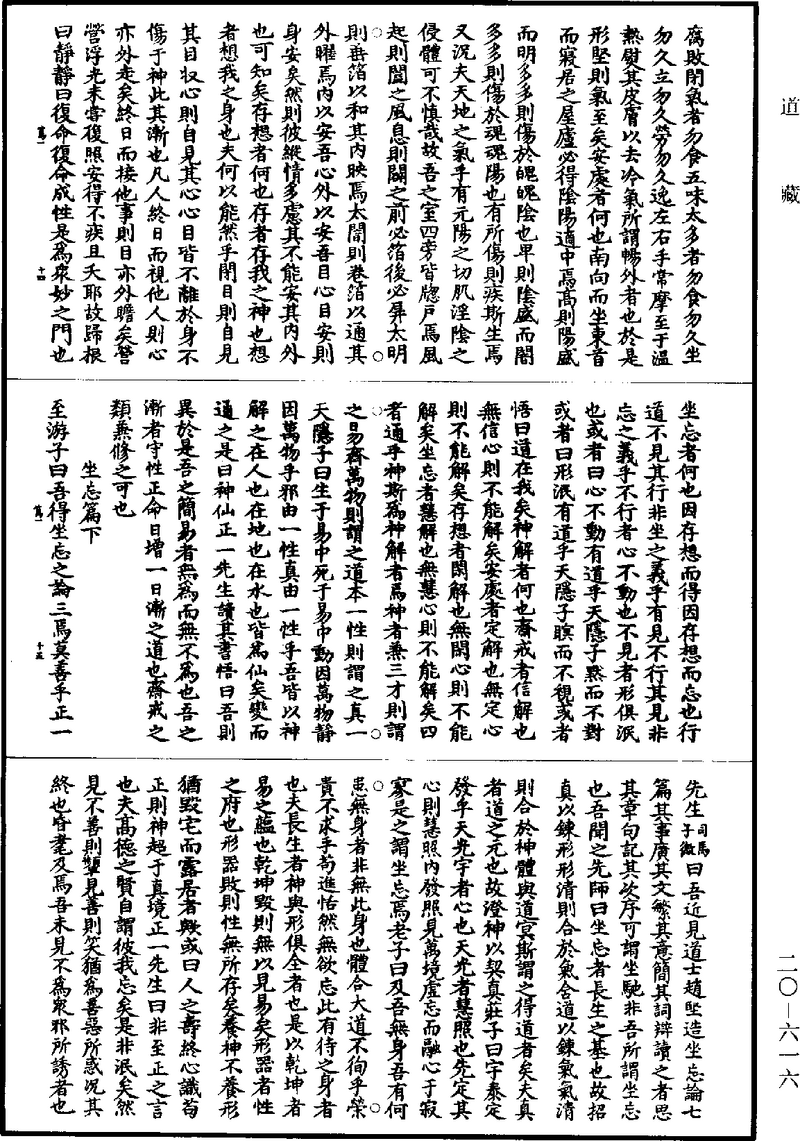 道藏
腐敗閉氣者勿食五味太多者勿食勿久坐
勿久立勿久勞勿久逸左右手常摩至于溫
熱熨其皮膚以去冷氣所謂暢外者也於是
形堅則氣至矣安處者何也南向而坐東首
而寢居之屋廬必得陰陽適中焉高則陽盛
而明多多則傷於魄魄陰也卑則陰盛而闇
多多則傷於魂魂陽也有所傷則疾斯生焉
又況夫天地之氣乎有元陽之切肌淫陰之
侵體可不慎哉故吾之室四旁皆牕戶焉風
起則闔之風息則闢之前必箔後必屏太明
則垂箔以和其内映焉太闇則卷箔以通其
外曜焉内以安吾心外以安吾目心目安則
身安矣然則彼縱情多慮其不能安其内外
也可知矣存想者何也存者存我之神也想
者想我之身也夫何以能然乎閉目則自見
其目収心則自見其心心目皆不離於身不
傷于神此其漸也凡人終日而視他人則心
亦外走矣終日而接他事則目亦外瞻矣營
營浮光未嘗復照安得不疾且夭耶故歸根
曰靜靜曰復命復命成性是爲衆妙之門也
萬一 十四
坐忘者何也因存想而得因存想而忘也行
道不見其行非坐之義乎有見不行其見非
忘之義乎不行者心不動也不見者形俱泯
也或者曰心不動有道乎天隱子黙而不對
或者曰形泯有道乎天隱子瞑而不視或者
悟曰道在我矣神解者何也齋戒者信解也
無信心則不能解矣安處者定解也無定心
則不能解矣存想者閑解也無閑心則不能
解矣坐忘者慧解也無慧心則不能解矣四
者通乎神斯爲神解者焉神者兼三才則謂
之易齊萬物則謂之道本一性則謂之真一
天隱子曰生于易中死于易中動因萬物靜
因萬物乎邪由一性真由一性乎吾皆以神
解之在人也在地也在水也皆爲仙矣變而
通之是曰神仙正一先生讀其書悟曰吾則
異於是吾之簡易者無爲而無不爲也吾之
漸者守性正命日增一日漸之道也齋戒之
類兼修之可也
坐忘篇下
至游子曰吾得坐忘之論三焉莫善乎正一
萬一 十五
先生司馬子微曰吾近見道士趙堅造坐忘論七
篇其事廣其文繁其意簡其詞辨讀之者思
其章句記其次序可謂坐馳非吾所謂坐忘
也吾聞之先師曰坐忘者長生之基也故招
真以鍊形形清則合於氣含道以鍊氣氣清
則合於神體與道冥斯謂之得道者矣夫真
者道之元也故澄神以契真莊子曰宇泰定
發乎天光宇者心也天光者慧照也先定其
心則慧照内發照見萬境虛忘而融心于寂
寥是之謂坐忘焉老子曰及吾無身吾有何
患無身者非無此身也體合大道不徇乎榮
貴不求乎苟進恬然無欲忘此有待之身者
也夫長生者神與形俱全者也是以乾坤者
易之蘊也乾坤毀則無以見易矣形器者性
之府也形器敗則性無所存矣養神不養形
猶毀宅而露居者歟或曰人之壽終心識苟
正則神超于真境正一先生曰非至正之言
也夫高德之賢自謂彼我忘矣是非泯矣然
見不善則顰見善則笑猶爲善惡所惑況其
終也昏耄及焉吾未見不爲衆邪所誘者也
二〇—六一六